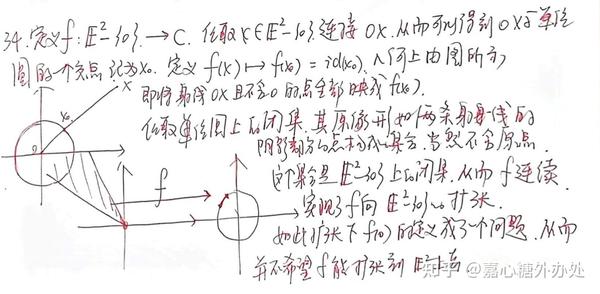 34. 定义 f: E²-{0} → C. 任取 x∈E²-{0} 连接 OX. 从而可以得到 OX 与单位
圆的一个交点 记为 x₀. 定义 f(x) ↦ f(x₀) = id(x₀). 几何上由图所示
即将射线 OX 且不含 0 的点全部映成 f(x₀).
X
x₀
0
任取单位圆上的闭集. 其原像形如两条射线的
阴影部分的点构成的集合. 当然不含原点.
这个集合是 E²-{0} 上的闭集. 从而 f 连续.
f
实现了 f 向 E²-{0} 的扩张.
如此扩张下 f(0) 的定义成了个问题. 从而
并不希望 f 能扩张到 E² 上去
知乎 @嘉心糖外办处